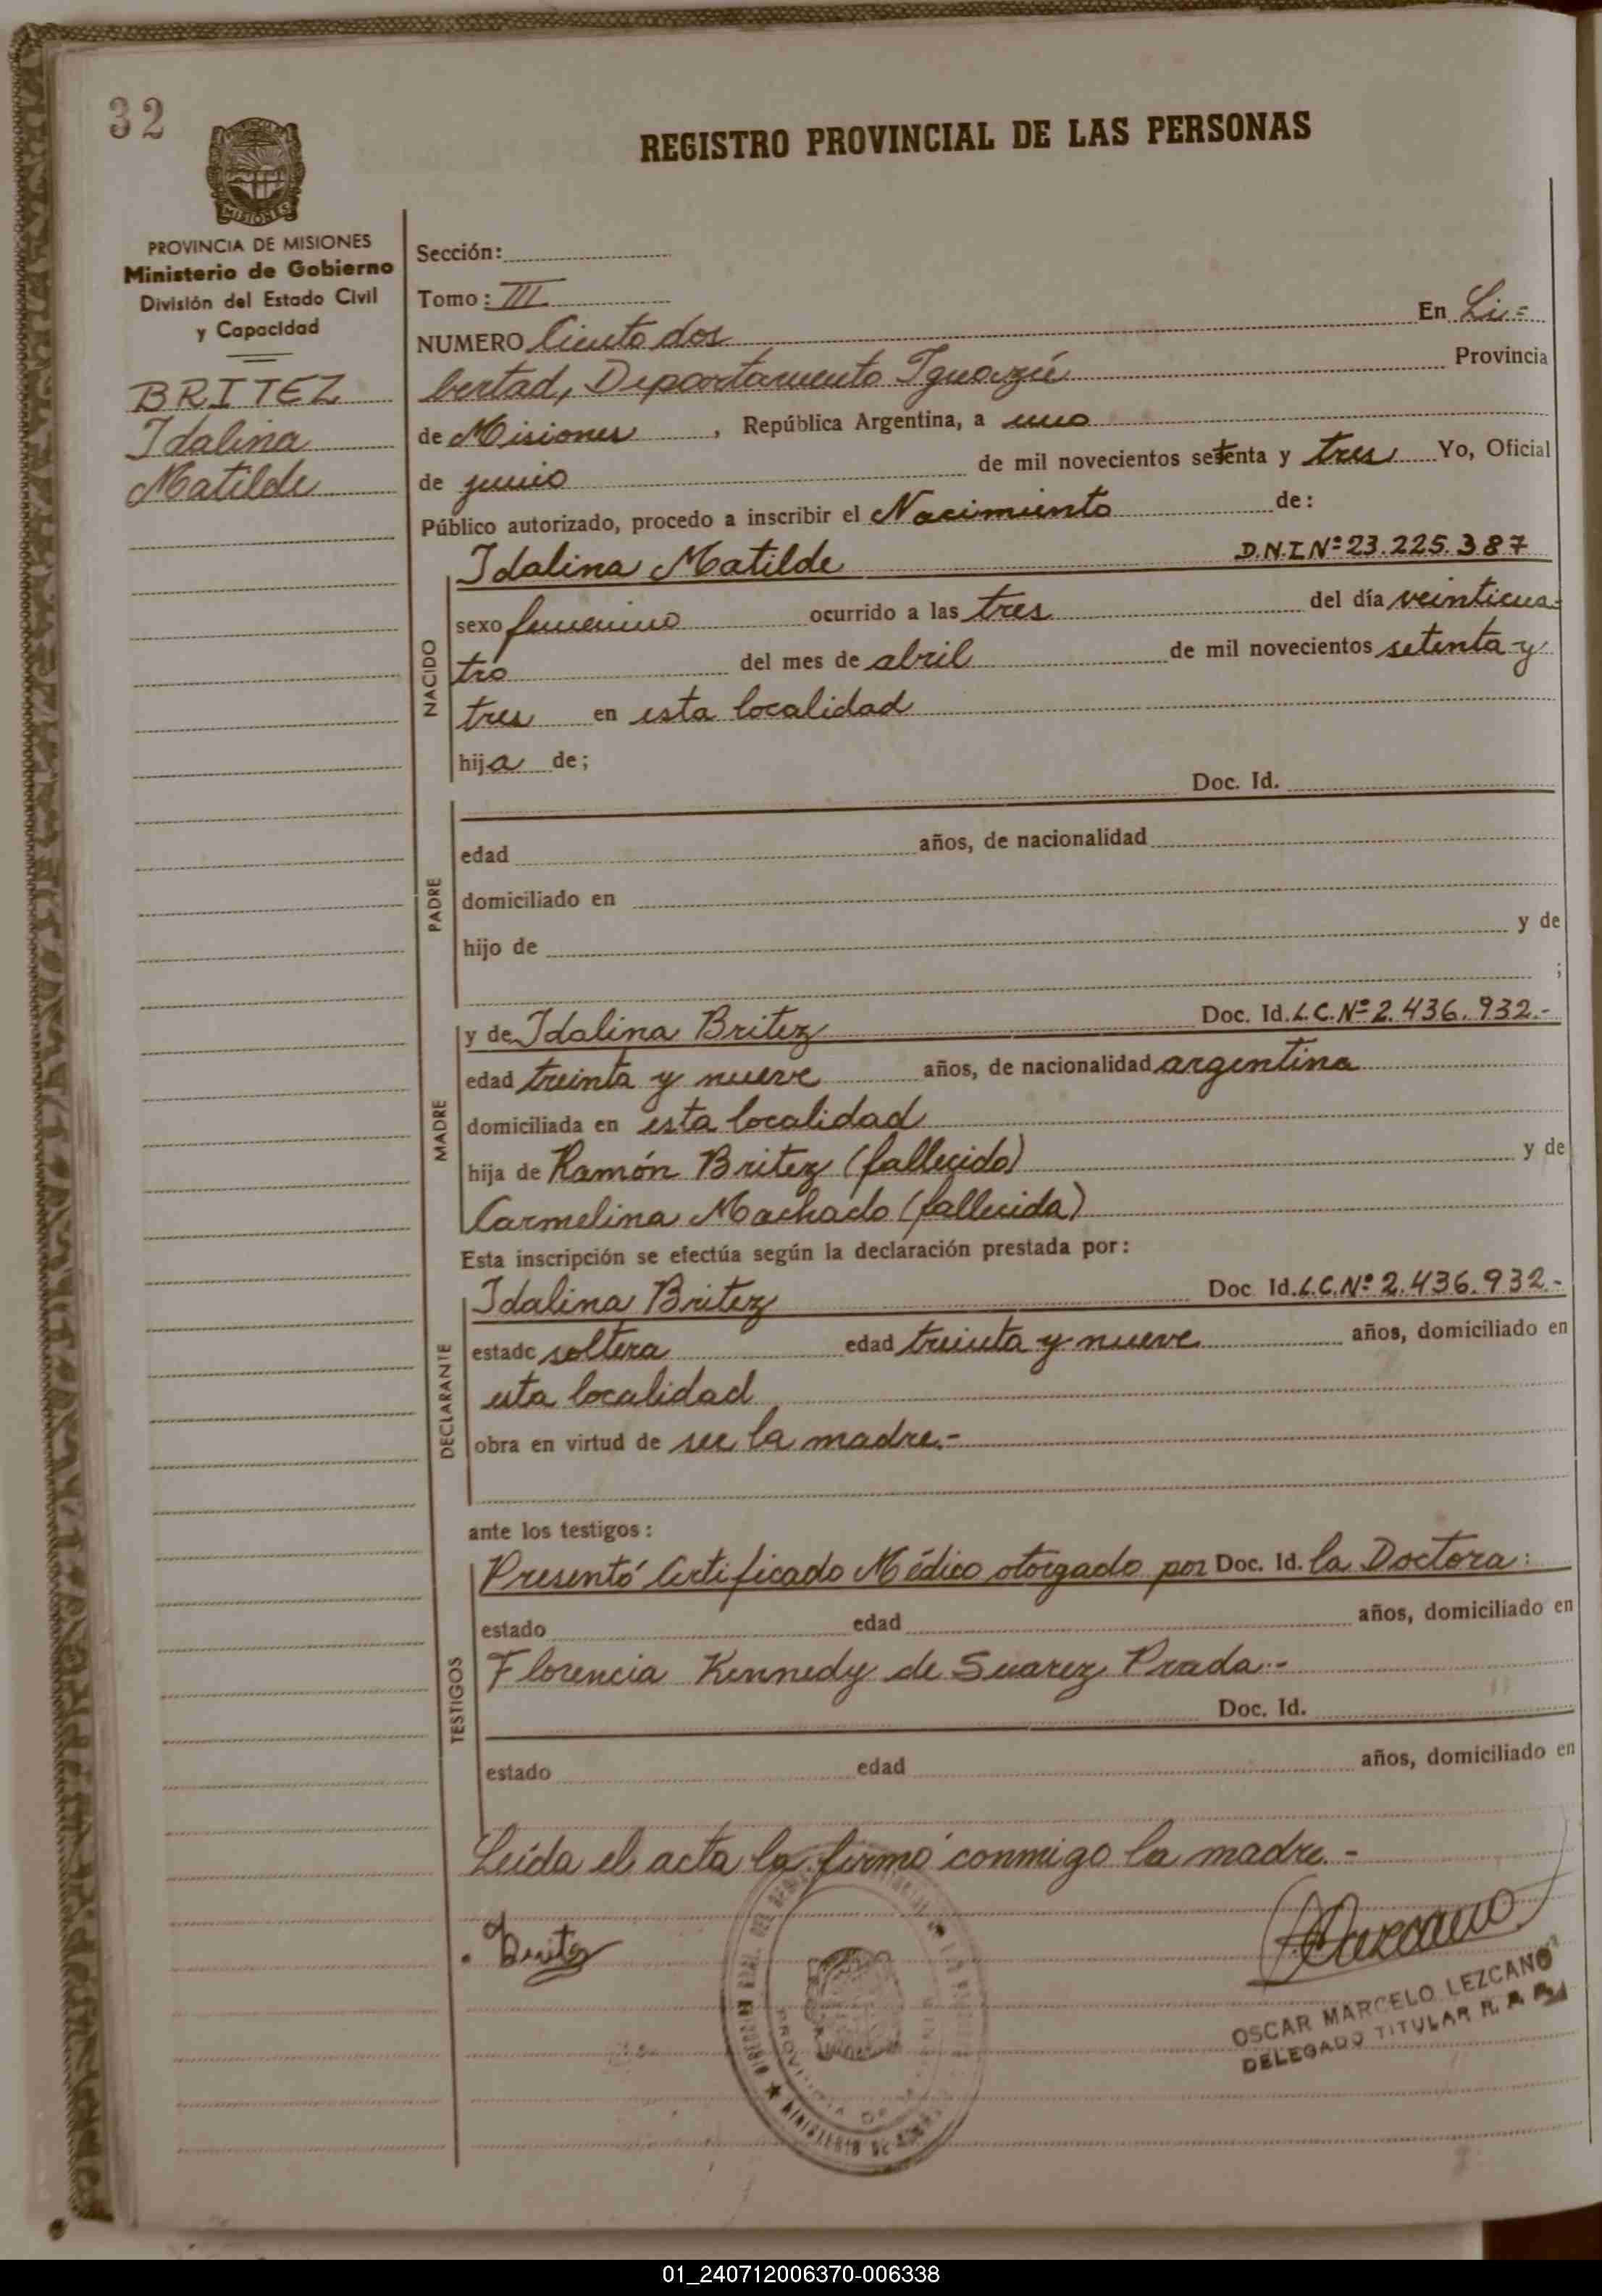 32
REGISTRO PROVINCIAL DE LAS PERSONAS
MISIONES
PROVINCIA DE MISIONES
Ministerio de Gobierno
División del Estado Civil
y Capacidad
BRITEZ
Idalina
Matilde
Sección:
Tomo: III
NUMERO Ciento dos En Li=
bertad, Departamento Iguazú Provincia
de Misiones, República Argentina, a uno
de junio de mil novecientos setenta y tres Yo, Oficial
Público autorizado, procedo a inscribir el Nacimiento de:
NACIDO
Idalina Matilde D.N.I Nº 23.225.387
sexo femenino ocurrido a las tres del día veinticua-
tro del mes de abril de mil novecientos setenta y
tres en esta localidad
hija de;
PADRE
Doc. Id.
edad años, de nacionalidad
domiciliado en
hijo de y de
;
MADRE
y de Idalina Britez Doc. Id. L.C. Nº 2.436.932.-
edad treinta y nueve años, de nacionalidad argentina
domiciliada en esta localidad
hija de Ramón Britez (fallecido) y de
Carmelina Machado (fallecida)
Esta inscripción se efectúa según la declaración prestada por:
DECLARANTE
Idalina Britez Doc Id. L.C. Nº 2.436.932.-
estado soltera edad treinta y nueve años, domiciliado en
esta localidad
obra en virtud de ser la madre.-
ante los testigos:
TESTIGOS
Presentó Certificado Médico otorgado por Doc. Id. la Doctora:
estado edad años, domiciliado en
Florencia Kennedy de Suarez Prada.-
Doc. Id.
estado edad años, domiciliado en
Leída el acta la firmó conmigo la madre.-
Britez
PROVINCIA DE
MINISTERIO DE
OSCAR MARCELO LEZCANO
DELEGADO TITULAR R.
01_240712006370-006338